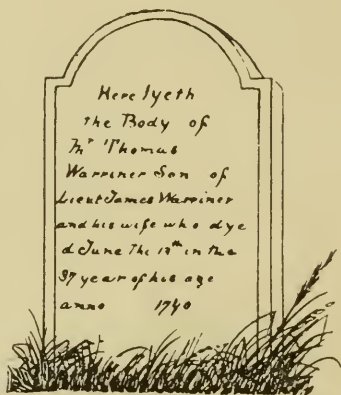 Here lyeth
the Body of
Mr Thomas
Warriner Son of
Lieut James Warriner
and his wife who dye
d June the 12th in the
37 year of his age
anno 1740